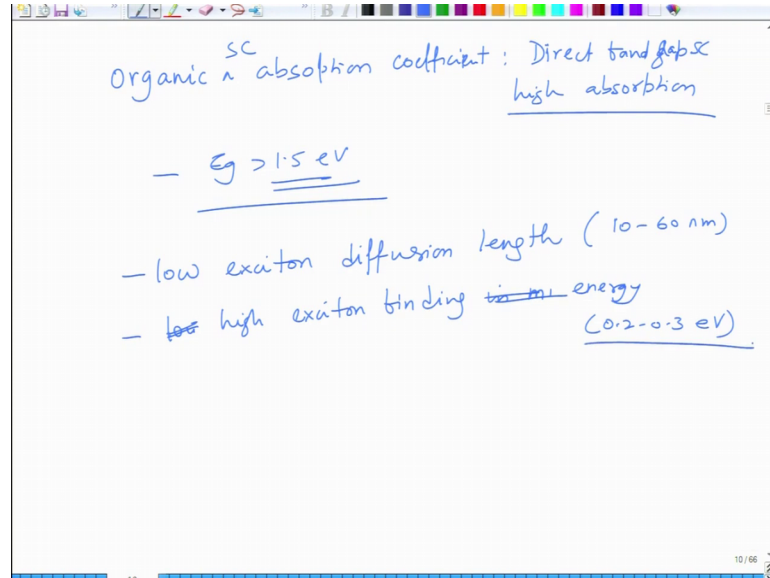 SC
Organic ^ absolption coefficient : Direct band gap SC
high absorbtion
— Eg > 1.5 eV
- low exciton diffusion length ( 10-60 nm)
- high exciton binding energy
(0.2-0.3 eV)
10 / 66